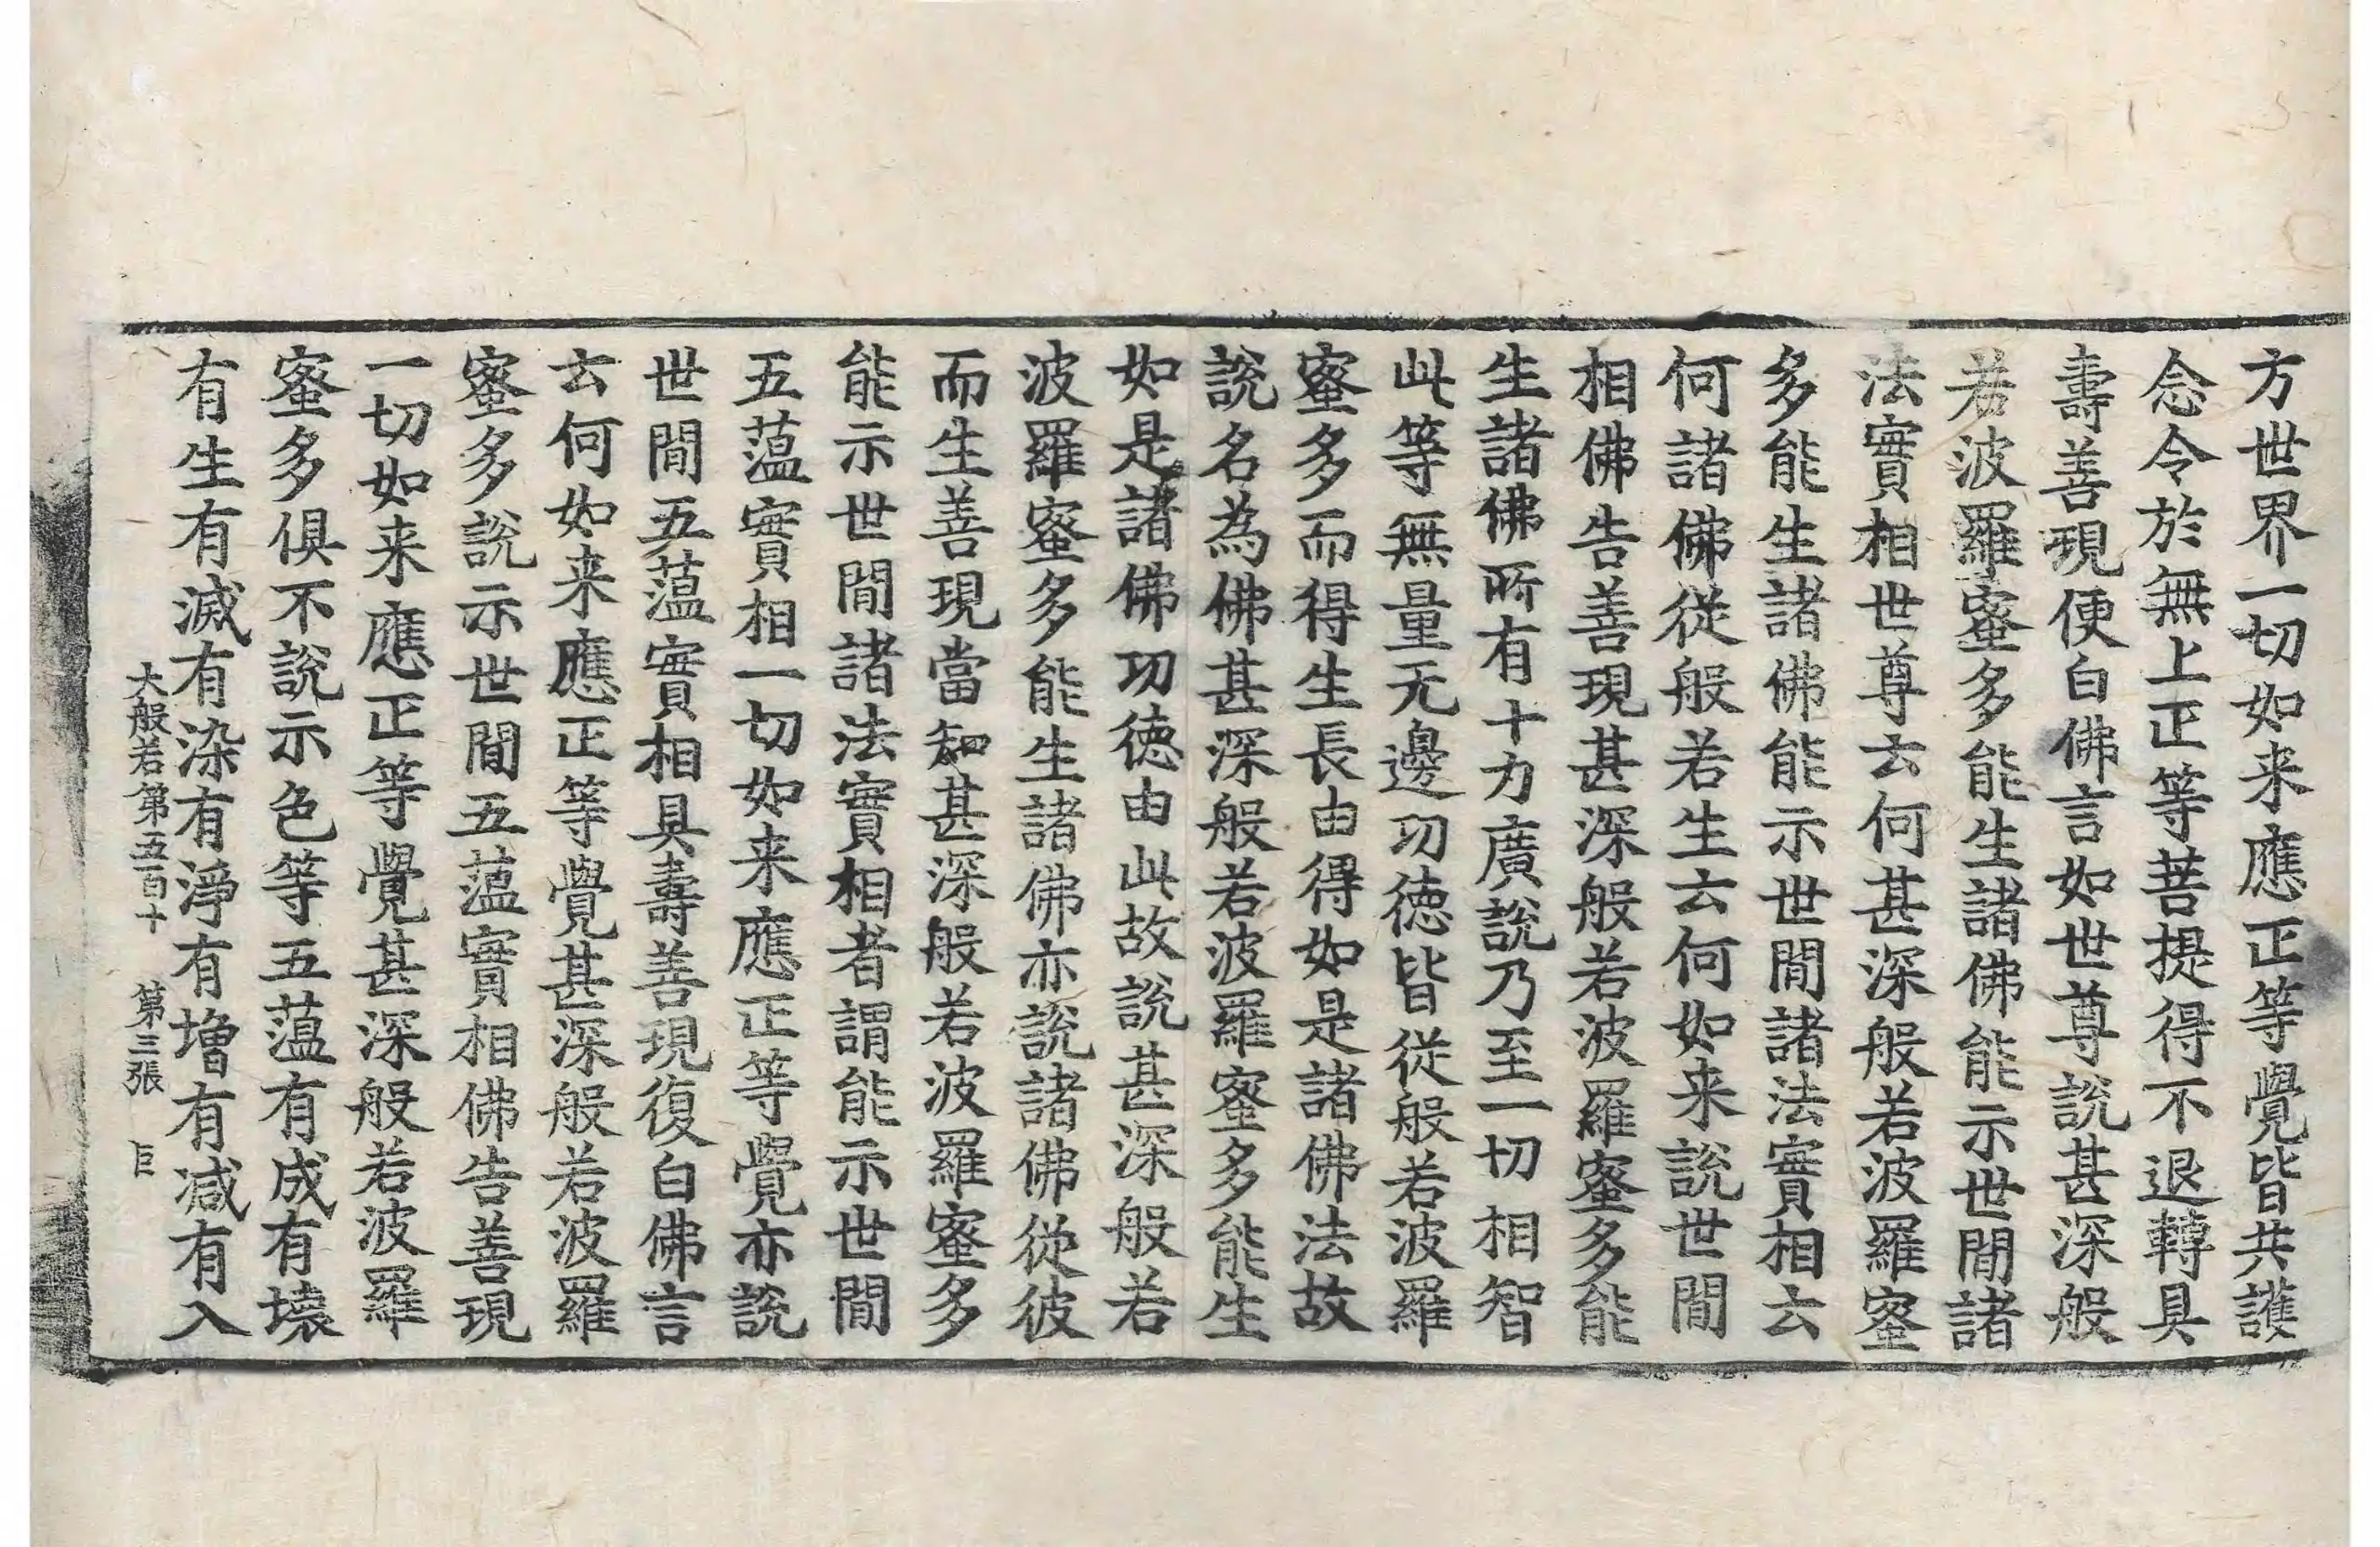 方世界一切如来應正等覺皆共護
念令於無上正等菩提得不退轉具
壽善現便白佛言如世尊說甚深般
若波羅蜜多能生諸佛能示世間諸
法實相世尊云何甚深般若波羅蜜
多能生諸佛能示世間諸法實相云
何諸佛從般若生云何如来說世間
相佛告善現甚深般若波羅蜜多能
生諸佛所有十力廣說乃至一切相智
此等無量无邊功徳皆從般若波羅
蜜多而得生長由得如是諸佛法故
說名為佛甚深般若波羅蜜多能生
如是諸佛功徳由此故說甚深般若
波羅蜜多能生諸佛亦說諸佛從彼
而生善現當知甚深般若波羅蜜多
能示世間諸法實相者謂能示世間
五蕰實相一切如来應正等覺亦說
世間五蕰實相具壽善現復白佛言
云何如来應正等覺甚深般若波羅
蜜多說示世間五蕰實相佛告善現
一切如来應正等覺甚深般若波羅
蜜多俱不說示色等五蕰有成有壞
有生有滅有染有淨有增有減有入
大般若第五百十 第三張 巨